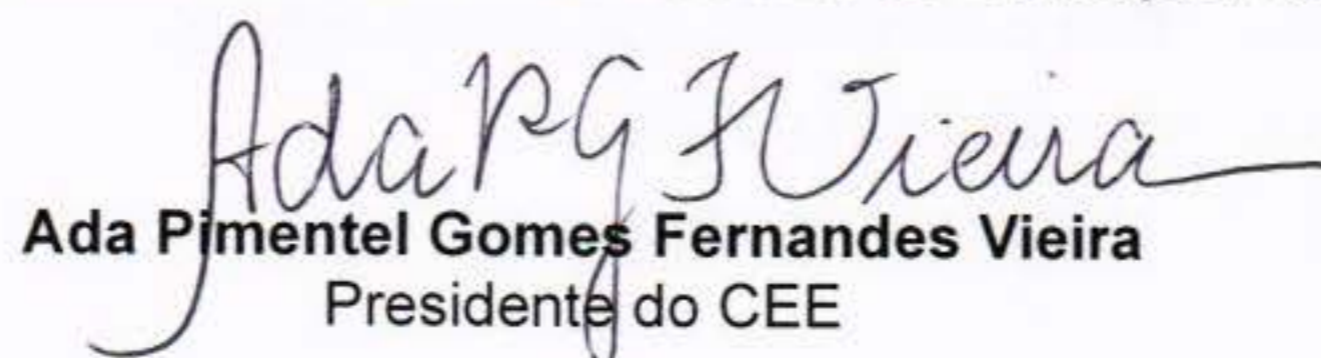 Ada P G F Vieira
Ada Pimentel Gomes Fernandes Vieira
Presidente do CEE